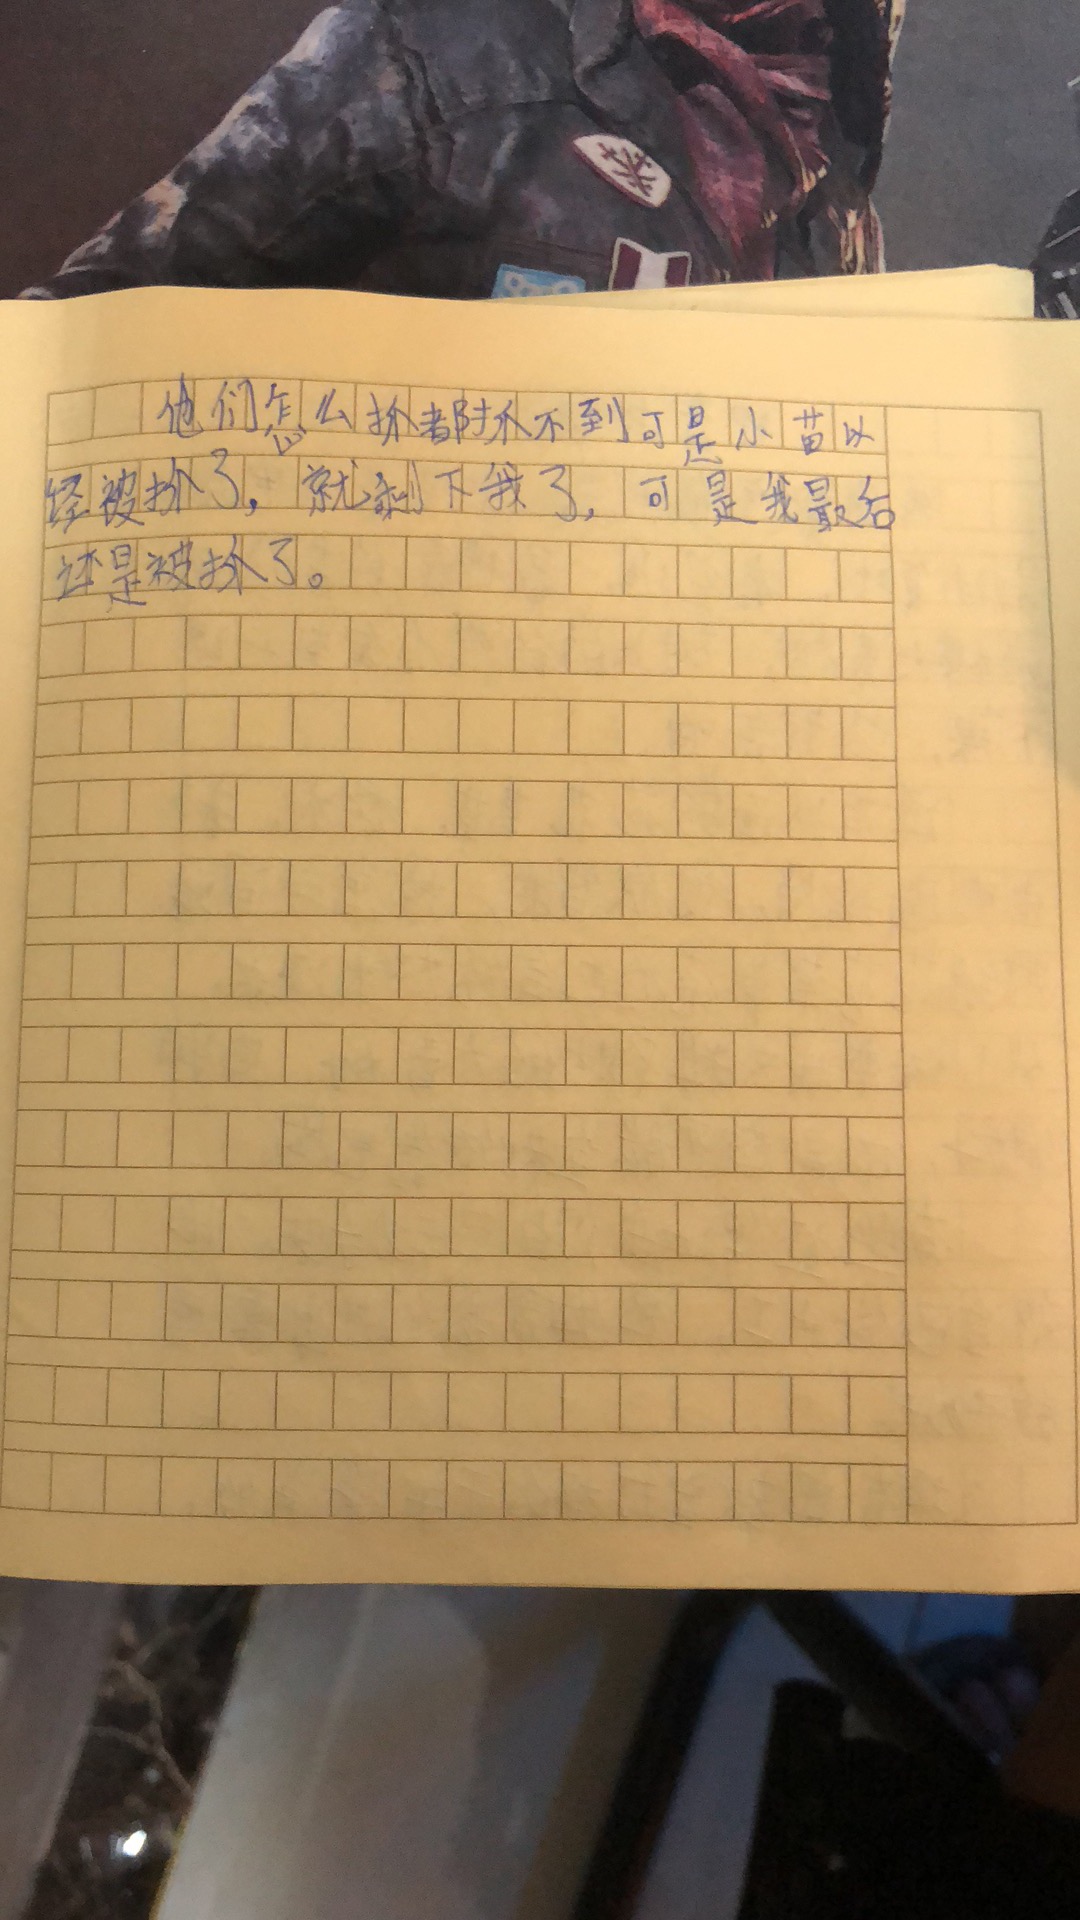 他们怎么抓都抓不到可是小苗以
经被抓了，就剩下我了，可是我最后
还是被抓了。